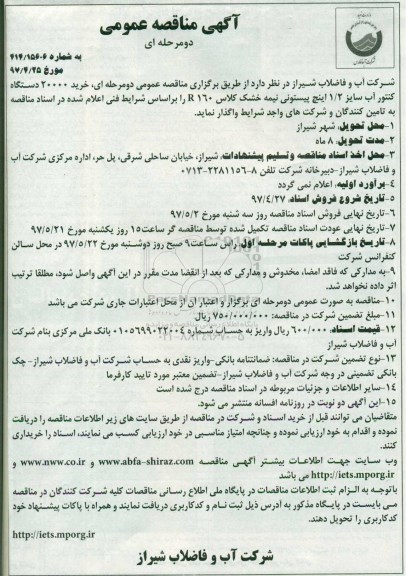 آگهی مناقصه عمومی
دومرحله ای
به شماره ۴۱۴/۱۵۶۰۶
مورخ ۹۷/۴/۲۵
شرکت آب و فاضلاب شیراز در نظر دارد از طریق برگزاری مناقصه عمومی دومرحله ای، خرید ۲۰۰۰۰ دستگاه
کنتور آب سایز ۱/۲ اینچ پیستونی نیمه خشک کلاس R ۱۶۰ را براساس شرایط فنی اعلام شده در اسناد مناقصه
به تامین کنندگان و شرکت های واجد شرایط واگذار نماید.
۱-محل تحویل، شهر شیراز
۲-مدت تحویل، ۸ ماه
۳-محل اخذ اسناد مناقصه وتسلیم پیشنهادات، شیراز، خیابان ساحلی شرقی، پل حر، اداره مرکزی شرکت آب
و فاضلاب شیراز-دبیرخانه شرکت تلفن ۸-۰۷۱۳-۲۲۸۱۱۵۶
۴-برآورد اولیه، اعلام نمی گردد
۵-تاریخ شروع فروش اسناد، ۹۷/۴/۲۷
۶-تاریخ نهایی فروش اسناد مناقصه روز سه شنبه مورخ ۹۷/۵/۲
۷-تاریخ نهایی عودت اسناد مناقصه تکمیل شده توسط مناقصه گر ساعت۱۵ روز یکشنبه مورخ ۹۷/۵/۲۱
۸-تاریخ بازگشایی پاکات مرحله اول راس ساعت۹ صبح روز دوشنبه مورخ ۹۷/۵/۲۲ در محل سالن
کنفرانس شرکت
۹-به مدارکی که فاقد امضا، مخدوش و مدارکی که بعد از انقضا مدت مقرر در این آگهی واصل شود، مطلقا ترتیب
اثر داده نخواهد شد.
۱۰-مناقصه به صورت عمومی دومرحله ای برگزار و اعتبار ان از محل اعتبارات جاری شرکت می باشد
۱۱-مبلغ تضمین شرکت در مناقصه: ۷۵۰/۰۰۰/۰۰۰ ریال
۱۲-قیمت اسناد، ۶۰۰/۰۰۰ ریال واریز به حساب شماره ۰۱۰۵۶۹۹۰۲۲۰۰۴ بانک ملی مرکزی بنام شرکت
آب و فاضلاب شیراز
۱۳-نوع تضمین شرکت در مناقصه: ضمانتنامه بانکی-واریز نقدی به حساب شرکت آب و فاضلاب شیراز- چک
بانکی تضمینی در وجه شرکت آب و فاضلاب شیراز-تضمین معتبر مورد تایید کارفرما
۱۴-سایر اطلاعات و جزئیات مربوطه در اسناد مناقصه درج شده است
۱۵-این آگهی دو نوبت در روزنامه افسانه منتشر می شود.
متقاضیان می توانند قبل از خرید اسناد و شرکت در مناقصه از طریق سایت های زیر اطلاعات مناقصه را دریافت
نموده و اقدام به خود ارزیابی نموده و چنانچه امتیاز مناسبی در خود ارزیابی کسب می نمایند، اسناد را خریداری
کنند.
وب سایت جهت اطلاعات بیشتر آگهی مناقصه www.abfa-shiraz.com و www.nww.co.ir و
http://iets.mporg.ir می باشد
باتوجه به الزام ثبت اطلاعات مناقصات در پایگاه ملی اطلاع رسانی مناقصات کلیه شرکت کنندگان در مناقصه
می بایست در پایگاه مذکور به آدرس ذیل ثبت نام و کدکاربری دریافت نمایند و همراه با پاکات پیشنهاد خود
کدکاربری را تحویل دهند.
http://iets.mporg.ir
شرکت آب و فاضلاب شیراز